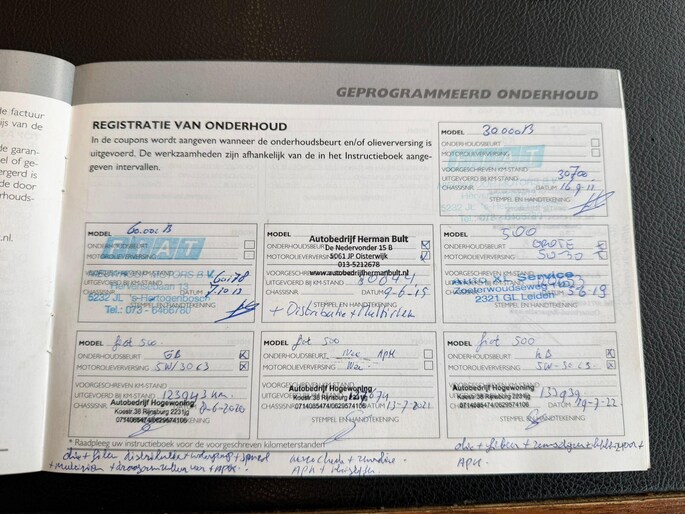 de factuur
js van de
de garan-
el of ge-
ergerd is
de door
erhouds-
.nl.
GEPROGRAMMEERD ONDERHOUD
REGISTRATIE VAN ONDERHOUD
In de coupons wordt aangeven wanneer de onderhoudsbeurt en/of olieverversing is
uitgevoerd. De werkzaamheden zijn afhankelijk van de in het Instructieboek aange-
geven intervallen.
MODEL 30.000 B
ONDERHOUDSBEURT
MOTOROLIEVERVERSING
VOORGESCHREVEN KM-STAND
UITGEVOERD BIJ KM-STAND 30700
CHASSISNR. DATUM
STEMPEL EN HANDTEKENING
MODEL 60.000 B
FIAT
ONDERHOUDSBEURT
MOTOROLIEVERVERSING
VOORGESCHREVEN KM-STAND
UITGEVOERD BIJ KM-STAND 60178
CHASSISNR. DATUM
5232 JL 's-Hertogenbosch
STEMPEL EN HANDTEKENING
Tel.: 073 - 6466780
Autobedrijf Herman Bult
De Nedervonder 15 B
ONDERHOUDSBEURT
5061 JP Oisterwijk
MOTOROLIEVERVERSING
013-5212678
VOORGESCHREVEN KM-STAND
www.autobedrijfhermanbult.nl
UITGEVOERD BIJ KM-STAND
CHASSISNR. DATUM 9-6-15
STEMPEL EN HANDTEKENING
+ Distributie + Multiriem
MODEL 500
ONDERHOUDSBEURT GROTE
MOTOROLIEVERVERSING 5W-30
Auto XL Service
Zoeterwoudseweg
2321 GL Leiden
STEMPEL EN HANDTEKENING
MODEL fiat 500
ONDERHOUDSBEURT GB
MOTOROLIEVERVERSING 5W/30 C3
VOORGESCHREVEN KM-STAND
UITGEVOERD BIJ KM-STAND 123943 km
Autobedrijf Hogewoning
CHASSISNR.
Koestr.38 Rijnsburg 2231jg
0714085474/0629574106
STEMPEL EN HANDTEKENING
MODEL fiat 500
ONDERHOUDSBEURT Nee APK
MOTOROLIEVERVERSING Nee
VOORGESCHREVEN KM-STAND
UITGEVOERD BIJ KM-STAND
Autobedrijf Hogewoning
CHASSISNR. DATUM 13-7-2021
Koestr.38 Rijnsburg 2231jg
0714085474/0629574106
STEMPEL EN HANDTEKENING
MODEL fiat 500
ONDERHOUDSBEURT KB
MOTOROLIEVERVERSING 5W-30 C3
VOORGESCHREVEN KM-STAND
UITGEVOERD BIJ KM-STAND
Autobedrijf Hogewoning
CHASSISNR. DATUM
Koestr.38 Rijnsburg 2231jg
0714085474/0629574106
STEMPEL EN HANDTEKENING
* Raadpleeg uw instructieboek voor de voorgeschreven kilometerstanden
olie + filter distributie + waterpomp +
+ multiriem + + APK
APK +
olie + filter +
APK